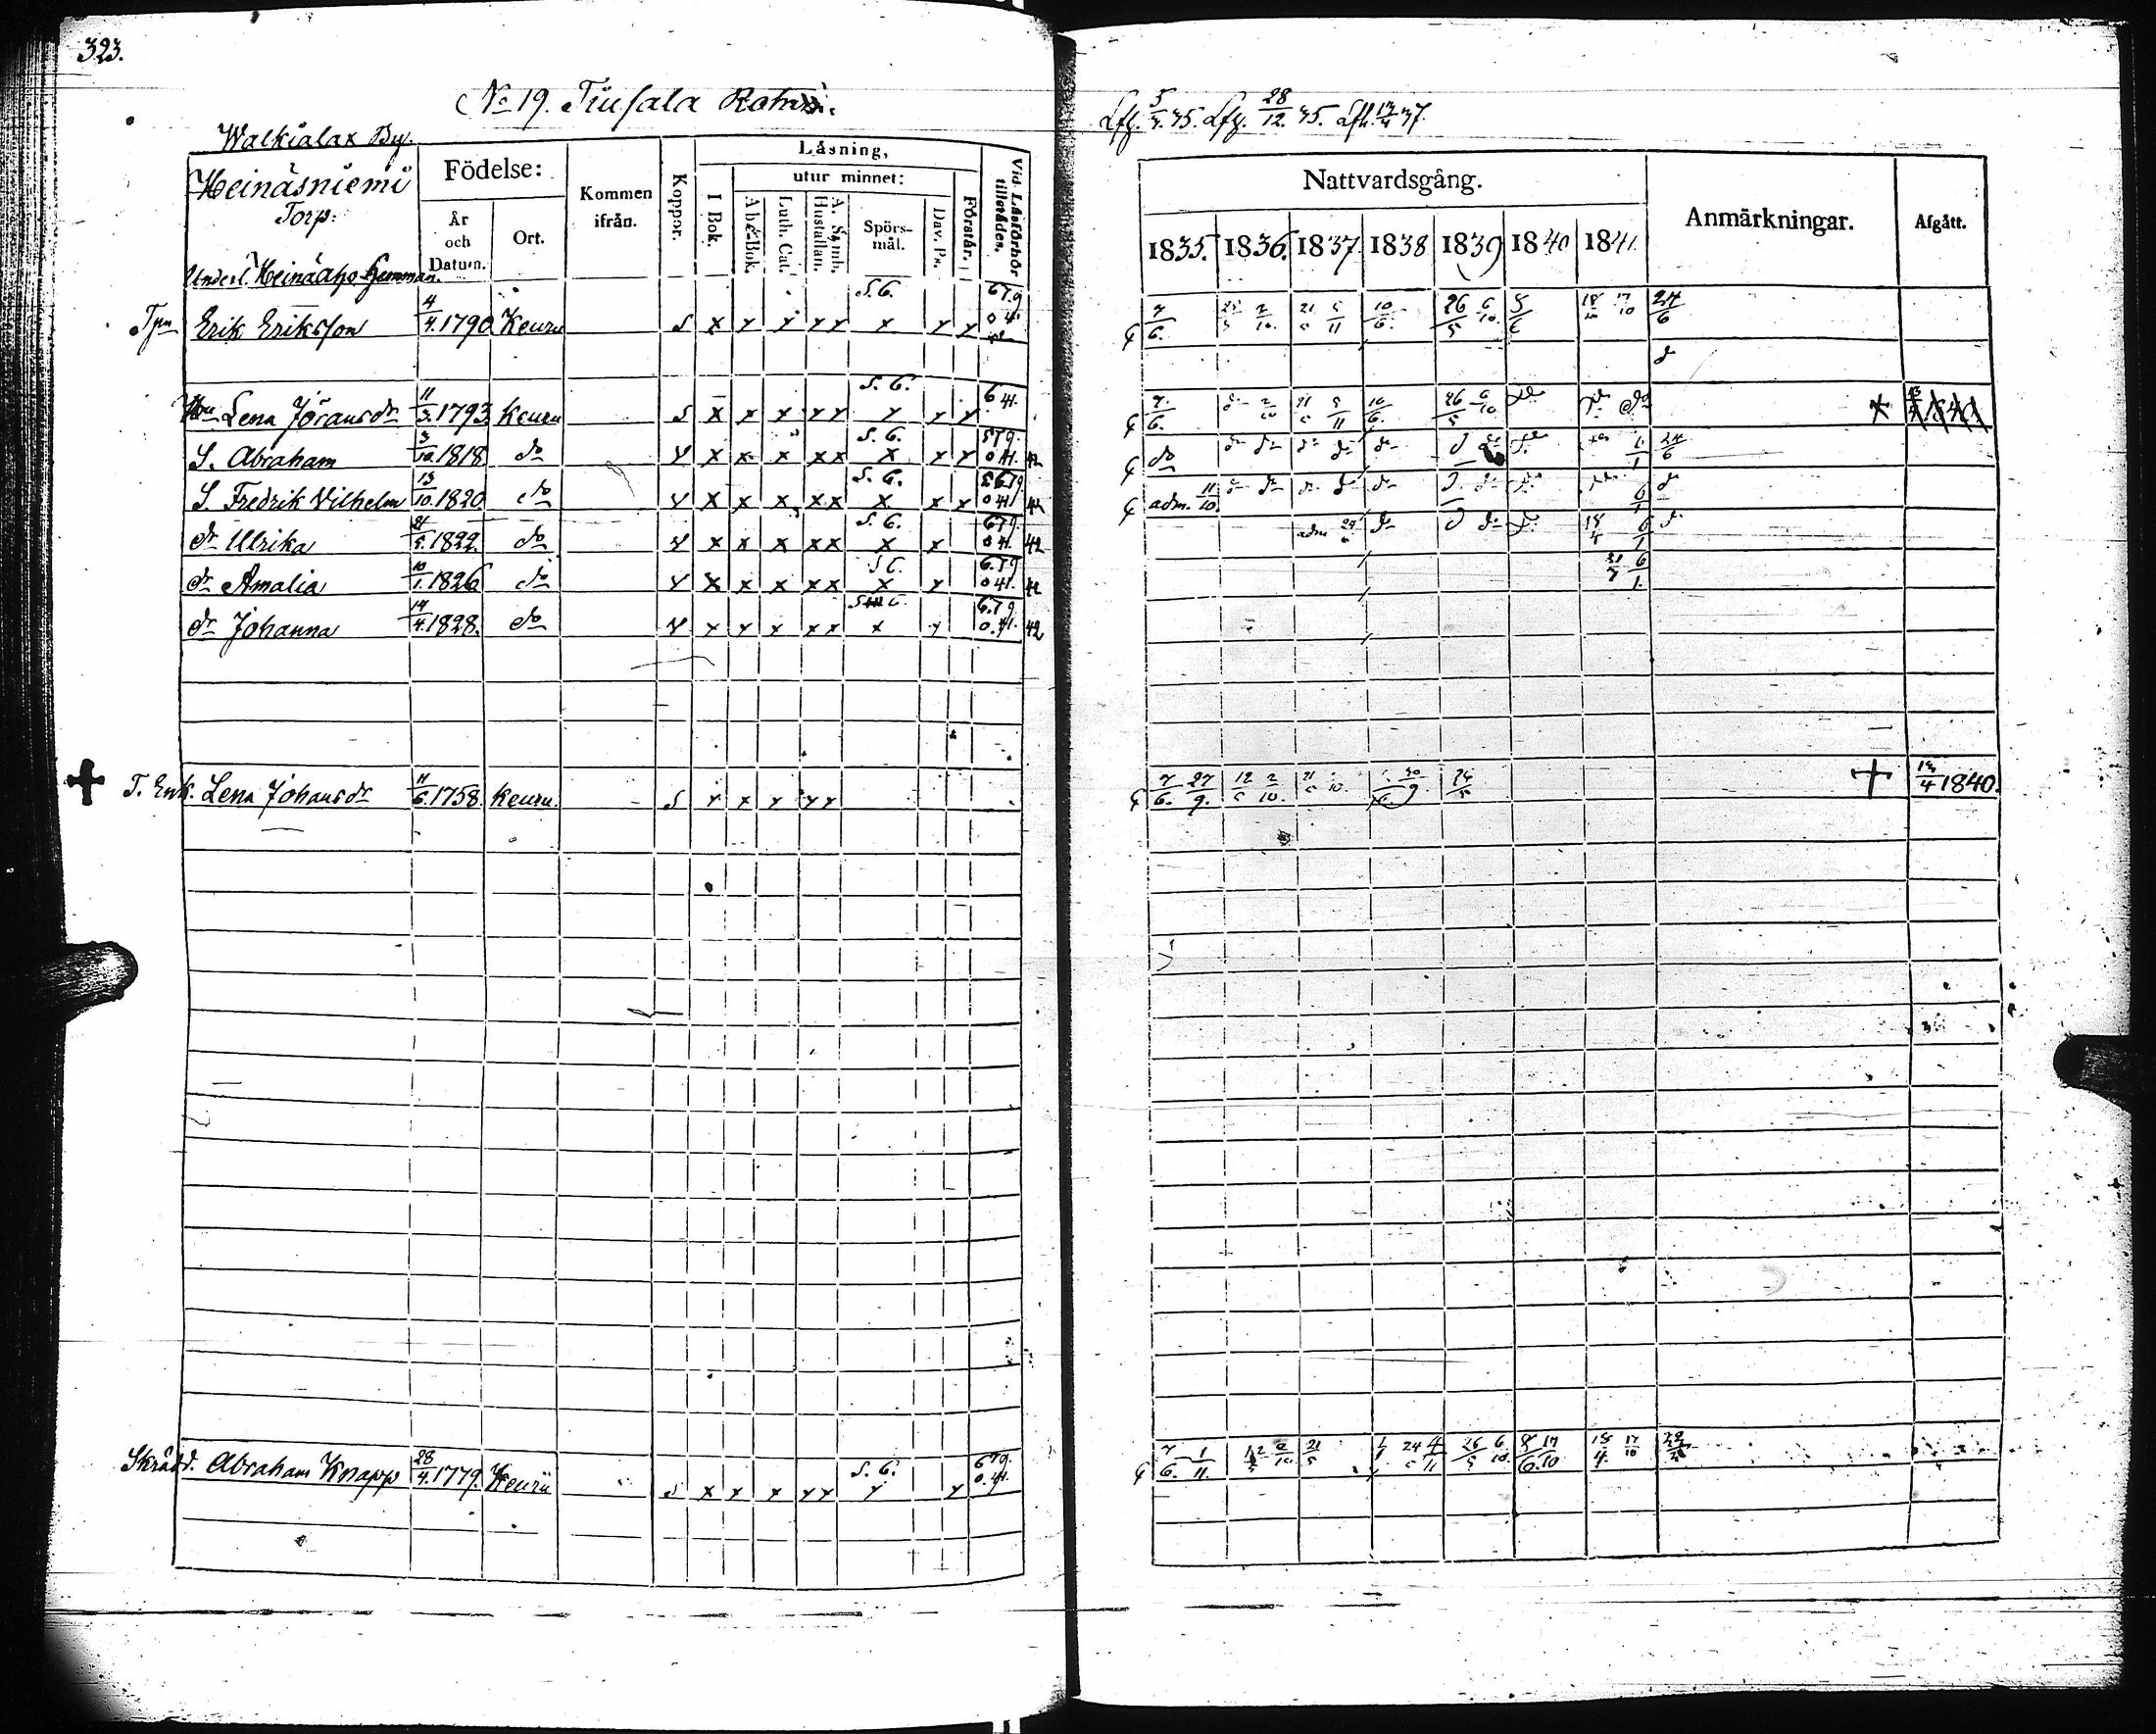 323.
No 19. Tiusala Rote.
Walkialax By.
Heinäsniemi
Torp:
Underl. Heinäaho Hemman.
Födelse:
År
och
Datum.
Ort.
Kommen
ifrån.
Koppor.
Läsning,
I Bok.
utur minnet:
Abc-Bok.
Luth. Cat.
A. Symb.
Hustaflan.
Spörs-
mål.
Dav. Ps.
Förstår.
Vid Läsförhör
tillstädes.
Tpn Erik Eriksson 4/4. 1790 Keuru S x x x x x S.G. x x x 679 0 41
Hu Lena Jöransdr 11/3. 1793 Keuru S x x x x x S.G. x x x 6 41.
S. Abraham 3/10. 1818 do V x x x x x S.G. x x x 579. 0 41. 42
S. Fredrik Vilhelm 13/10. 1820 do V x x x x x S.G. x x x 5679 0 41 42
dr Ulrika 21/5. 1822. do V x x x x x S.G. x x 679. 0 41. 42
dr Amalia 10/1. 1826 do V x x x x x S G. x x 6.79 0 41. 42
dr Johanna 14/4. 1828. do V x x x x x G. x x 6.79. 0.41. 42
T. Enk. Lena Johansdr 11/6. 1758. Keuru. S x x x x x
Skrädd. Abraham Knapp 28/4. 1779. Keuru S x x x x x S.G. x x 679. 0.41.
Lfg. 5/4. 35. Lfg. 28/12. 35. Lfh. 13/4 37.
Nattvardsgång.
1835. 1836. 1837. 1838 1839 1840 1841.
Anmärkningar.
Afgått.
7/6. 2/10. 5/11 10/6. 26/5 6/10 5/6 17/10 24/6
d
7/6. 2/10 5/11 10/6. 26/5 6/10 do do
do do do do do do do 1/1 24/6
adm. 11/10. do do do do do do 6/1 d
adm do do do 18/4 6/1 d
6/1.
7/6. 27/9. 12 2/10. 21 10. 26/5 + 14/4 1840.
7/6. 1/11. 12 2/10 21/5 24 4/11 26/5 6/10 8/6. 17/10 18/4. 17/10